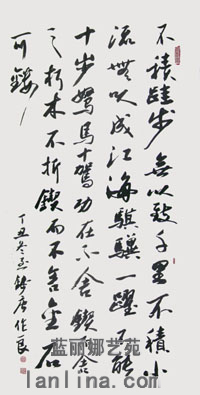 不積跬步無以致千里不積小
流無以成江海騏驥一躍不能
十步駑馬十駕功在不舍鍥而舍
之朽木不折鍥而不舍金石
可鏤
丁丑冬
蓝丽娜艺苑
lanlina.com